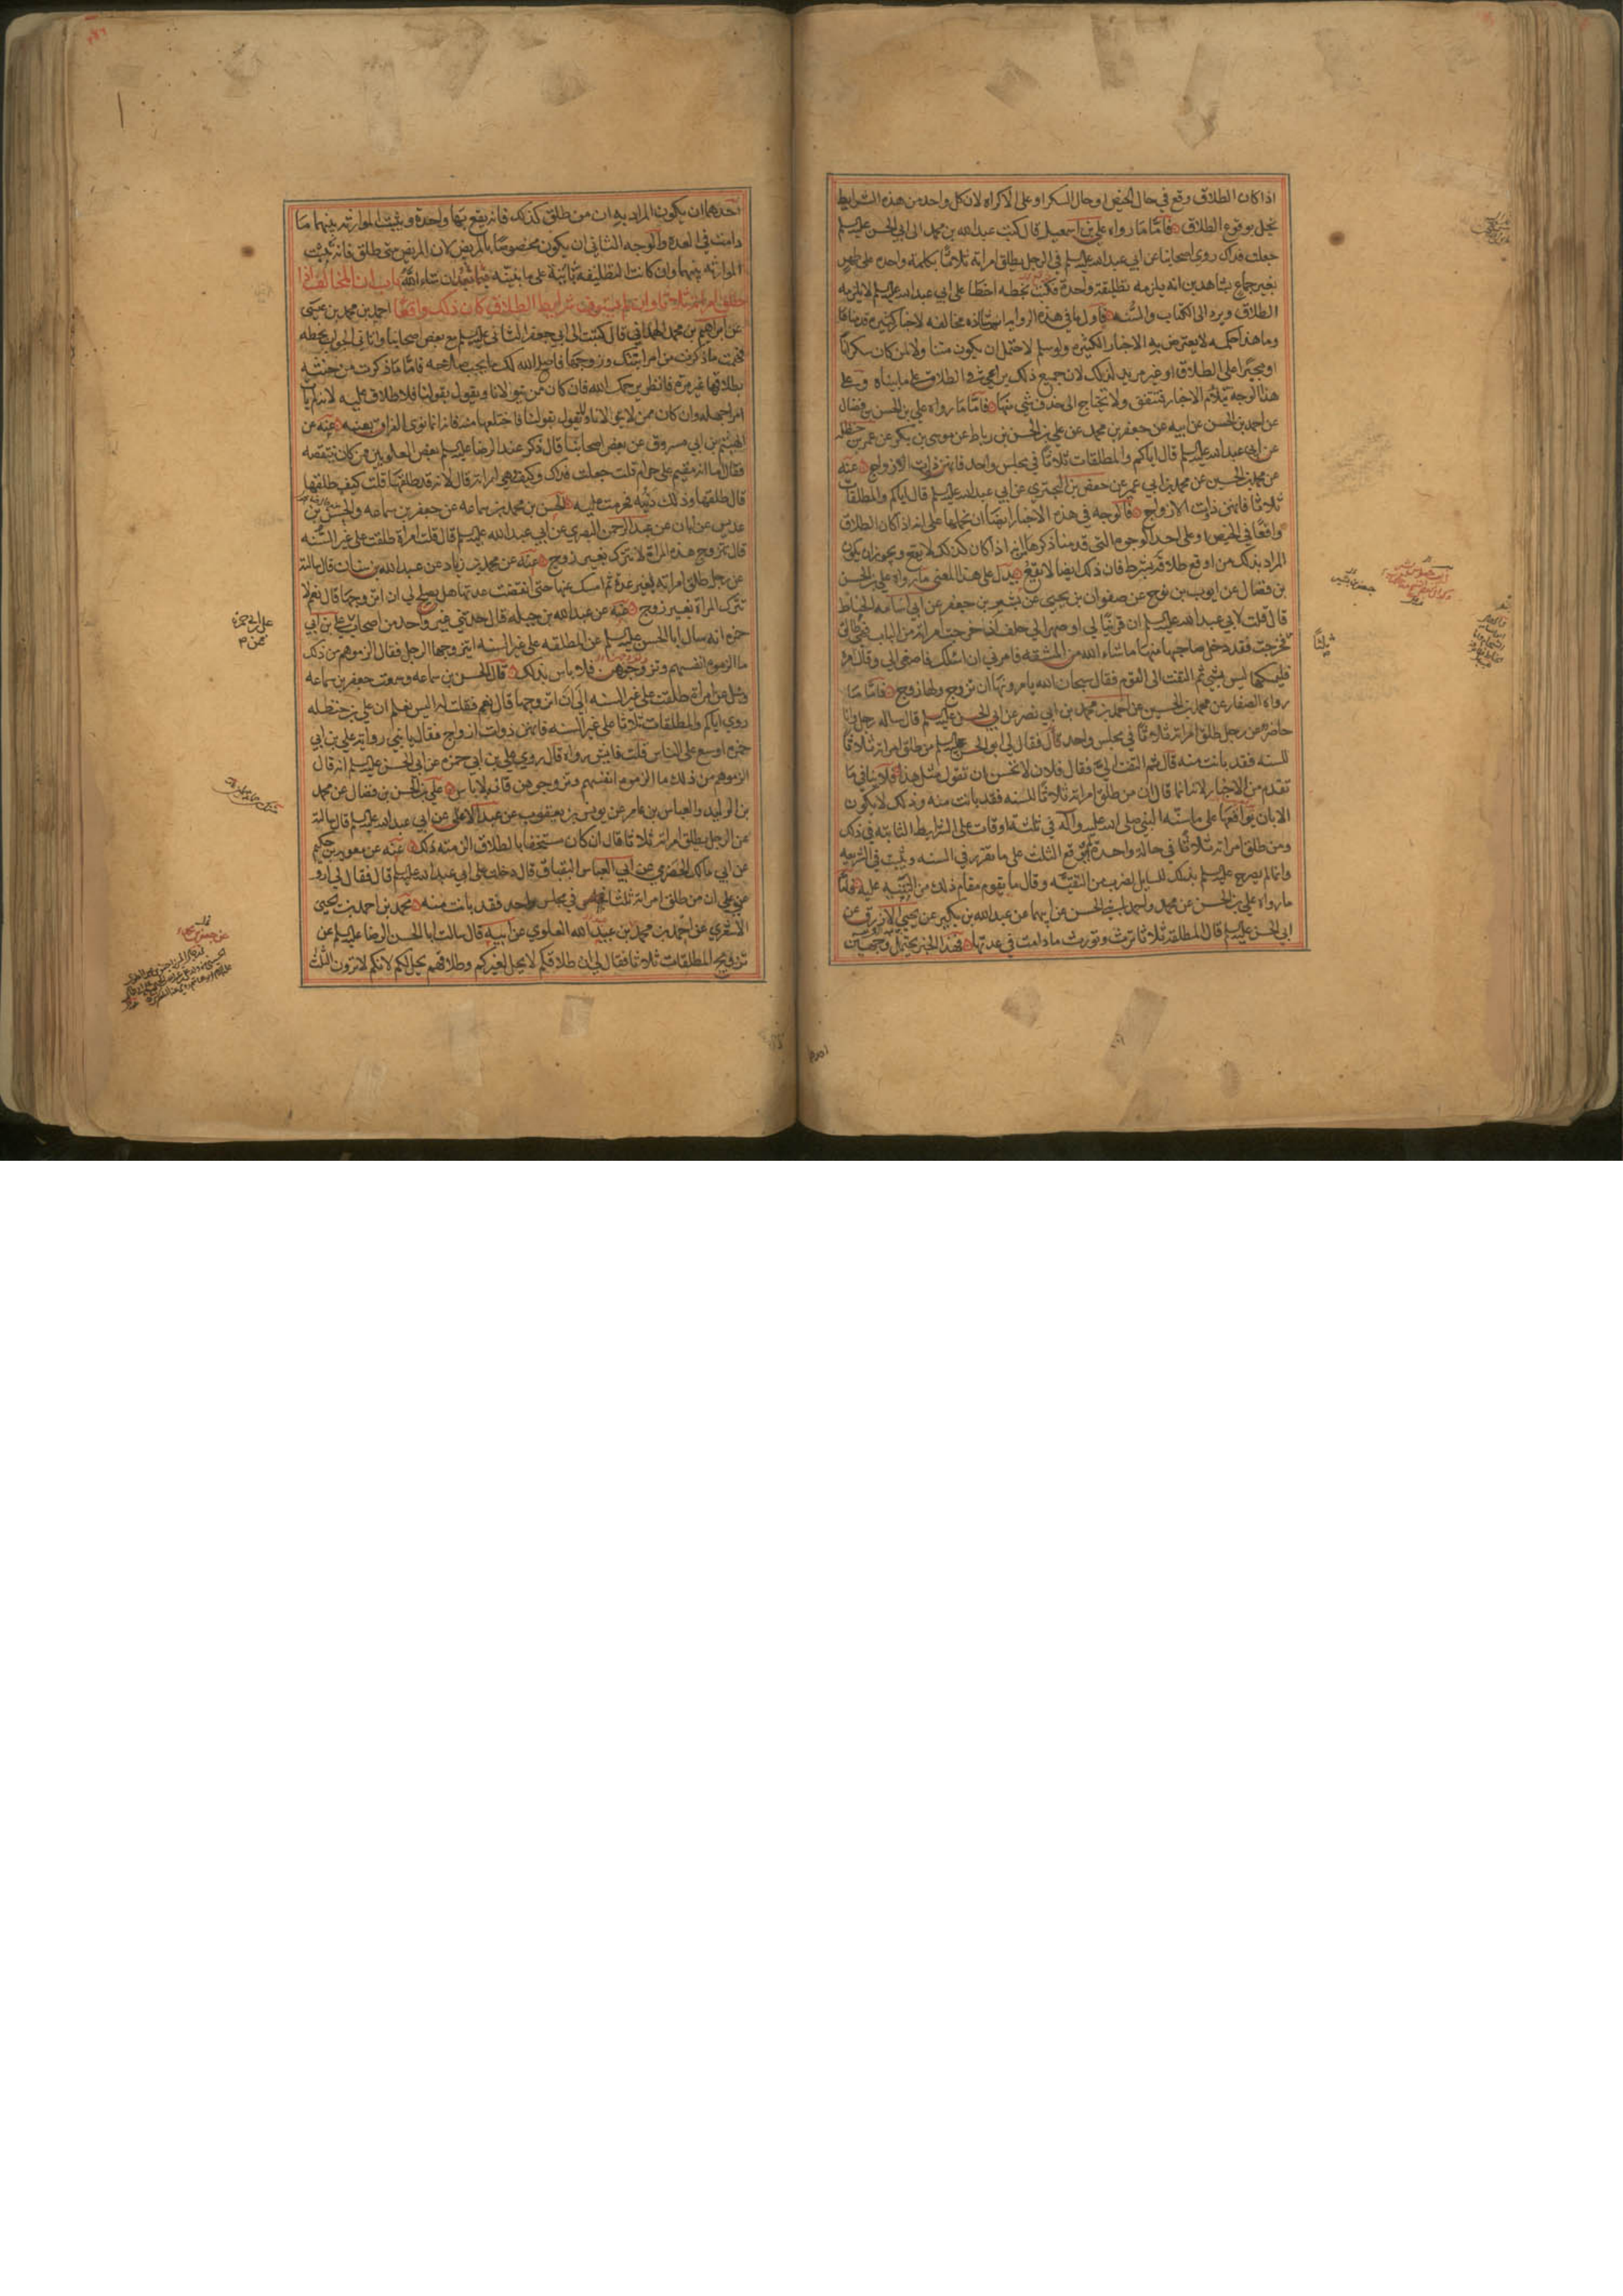 اذا كان الطلاق وقع في حال الحيض او حال السكر او على الاكراه لان كل واحد من هذه الشرايط
تخل بوقوع الطلاق فامّا ما رواه علي بن اسمعيل قال كتب عبدالله بن محمد الى ابي الحسن عليه السلم
جعلت فداك روى اصحابنا عن ابي عبدالله عليه السلم في الرجل يطلق امراته ثلاثا بكلمة واحدة على طهر
بغير جماع بشاهدين انه يلزمه تطليقة واحدة فكتب بخطه اخطا على ابي عبدالله عليه السلم لا يلزمه
الطلاق ويرد الى الكتاب والسنه فاول ما في هذه الروايه انها شاذه مخالفه لاخبار كثيره قدمناها
وما هذا حكمه لا يعترض به الاخبار الكثيره ولو سلم لاحتمل ان يكون متناولا لمن كان سكرانا
او مجبرا على الطلاق او غير مريد لذلك لان جميع ذلك يراعى في الطلاق على ما بيناه وعلى
هذا الوجه تتلائم الاخبار وتتفق ولا تحتاج الى حذف شي منها فامّا ما رواه علي بن الحسن بن فضال
عن احمد بن الحسن عن ابيه عن جعفر بن محمد عن علي بن الحسن بن رباط عن موسى بن بكر عن عمر بن حنظله
عن ابي عبدالله عليه السلم قال اياكم والمطلقات ثلاثا في مجلس واحد فانهن ذوات الازواج عنه
عن محمد بن الحسين عن محمد بن ابي عمير عن حفص بن البختري عن ابي عبدالله عليه السلم قال اياكم والمطلقات
ثلاثا فانهن ذوات الازواج فالوجه في هذه الاخبار ايضا ان نحملها على انه اذا كان الطلاق
واقعا في الحيض او على احد الوجوه التي قدمنا ذكرها لانه اذا كان كذلك لا يقع ويجوز ان يكون
المراد بذلك من اوقع طلاقه بشرط فان ذلك ايضا لا يقع يدل على هذا المعنى ما رواه علي بن الحسن
بن فضال عن ايوب بن نوح عن صفوان بن يحيى عن بشير بن جعفر عن ابي اسامه الحناط
قال قلت لابي عبدالله عليه السلم ان قريبا لي او صهرا لي حلف ان خرجت امراته من الباب فهي طالق
فخرجت فقد دخل صاحبها منها ما شاء الله من المشقه فامرني ان اسئلك فاصغى الي وقال مره
فليمسكها ليس بشي ثم التفت الى القوم فقال سبحان الله يامرونها ان تزوج ولها زوج فامّا ما
رواه الصفار عن محمد بن الحسين عن احمد بن محمد بن ابي نصر عن ابي الحسن عليه السلم قال ساله رجل وانا
حاضر عن رجل طلق امراته ثلاثا في مجلس واحد قال فقال لي ابو الحسن عليه السلم من طلق امراته ثلاثا
للسنه فقد بانت منه قال ثم التفت الي فقال فلان لا تحسن ان تقول مثل هذا فلا ينافي ما
تقدم من الاخبار لانه انما قال ان من طلق امراته ثلاثا للسنه فقد بانت منه وذلك لا يكون
الا بان يوقعها على ما سنه النبي صلى الله عليه وآله في ثلثة اوقات على الشرايط الثابته في ذلك
ومن طلق امراته ثلاثا في حالة واحدة لم يقع الثلث على ما تقرر في السنه ويثبت في الشريعه
وانما لم يصرح عليه السلم بذلك للسايل لضرب من التقيّه وقال ما يقوم مقام ذلك من التنبيه عليه فامّا
ما رواه علي بن الحسن عن محمد واحمد ابني الحسن عن ابيهما عن عبدالله بن بكير عن يحيى الازرق عن
ابي الحسن عليه السلم قال المطلقة ثلاثا ترث وتورث ما دامت في عدتها فهذا الخبر يحتمل وجهين
احدهما ان يكون المراد به ان من طلق كذلك فانه يقع بها واحدة ويثبت الموارثه بينهما ما
دامت في العده والوجه الثاني ان يكون مخصوصا بالمريض لان المريض متى طلق فانه يثبت
الموارثه بينهما وان كانت التطليقه باينة على ما نبينه فيما بعد ان شاء الله باب ان المخالف اذا
طلق امراته ثلاثا وان لم يستوف شرايط الطلاق كان ذلك واقعا احمد بن محمد بن عيسى
عن ابراهيم بن محمد الهمداني قال كتبت الى ابي جعفر الثاني عليه السلم مع بعض اصحابنا واتاني الجواب بخطه
فهمت ما ذكرت من امر ابنتك وزوجها فاصلح الله لك ما يحب صلاحه فاما ما ذكرت من حنثه
بطلاقها غير مرة فانظر يرحمك الله فان كان ممن يتولانا ويقول بقولنا فلا طلاق عليه لانه لم يات
امرا جهله وان كان ممن لا يتولانا ولا يقول بقولنا فاختلعها منه فانه انما نوى الفراق بعينه عنه عن
الهيثم بن ابي مسروق عن بعض اصحابنا قال ذكر عند الرضا عليه السلم بعض العلويين ممن كان ينتقصه
فقال اما انه مقيم على حرام قلت جعلت فداك وكيف وهي امراته قال لانه قد طلقها قلت كيف طلقها
قال طلقها وذلك دينه فحرمت عليه الحسن بن محمد بن سماعه عن جعفر بن سماعه والحسن بن
عديس عن ابان عن عبدالرحمن البصري عن ابي عبدالله عليه السلم قال قلت امرأة طلقت على غير السنه
قال تتزوج هذه المراة لا تترك بغير زوج عنه عن محمد بن زياد عن عبدالله بن سنان قال سالته
عن رجل طلق امراته لغير عدة ثم امسك عنها حتى انقضت عدتها هل يصلح لي ان اتزوجها قال نعم لا
تترك المراة بغير زوج عنه عن عبدالله بن جبله قال حدثني غير واحد من اصحاب علي بن ابي
حمزه انه سال ابا الحسن عليه السلم عن المطلقه على غير السنه ايتزوجها الرجل فقال الزموهم من ذلك
ما الزموه انفسهم وتزوجوهن فلا باس بذلك قال الحسن بن سماعه وسمعت جعفر بن سماعه
وسئل عن امراة طلقت على غير السنه الي ان اتزوجها قال نعم فقلت له اليس تعلم ان علي بن حنظله
روى اياكم والمطلقات ثلاثا على غير السنه فانهن ذوات ازواج فقال يا بني رواية علي بن ابي
حمزه اوسع على الناس قلت فايش رواه قال روى علي بن ابي حمزه عن ابي الحسن عليه السلم انه قال
الزموهم من ذلك ما الزموه انفسهم وتزوجوهن فانه لا باس علي بن الحسن بن فضال عن محمد
بن الوليد والعباس بن عامر عن يونس بن يعقوب عن عبد الاعلى عن ابي عبدالله عليه السلم قال سالته
عن الرجل يطلق امراته ثلاثا قال ان كان مستخفا بالطلاق الزمته ذلك عنه عن معويه بن حكيم
عن ابي مالك الحضرمي عن ابي العباس البقباق قال دخلت على ابي عبدالله عليه السلم قال فقال لي ارو
عني علي ان من طلق امراته ثلثا في مجلس واحد فقد بانت منه محمد بن احمد بن يحيى
الاشعري عن احمد بن محمد بن عبيد الله العلوي عن ابيه قال سالت ابا الحسن الرضا عليه السلم عن
تزويج المطلقات ثلاثا فقال لي ان طلاقكم لا يحل لغيركم وطلاقهم يحل لكم لانكم لا ترون الثلث